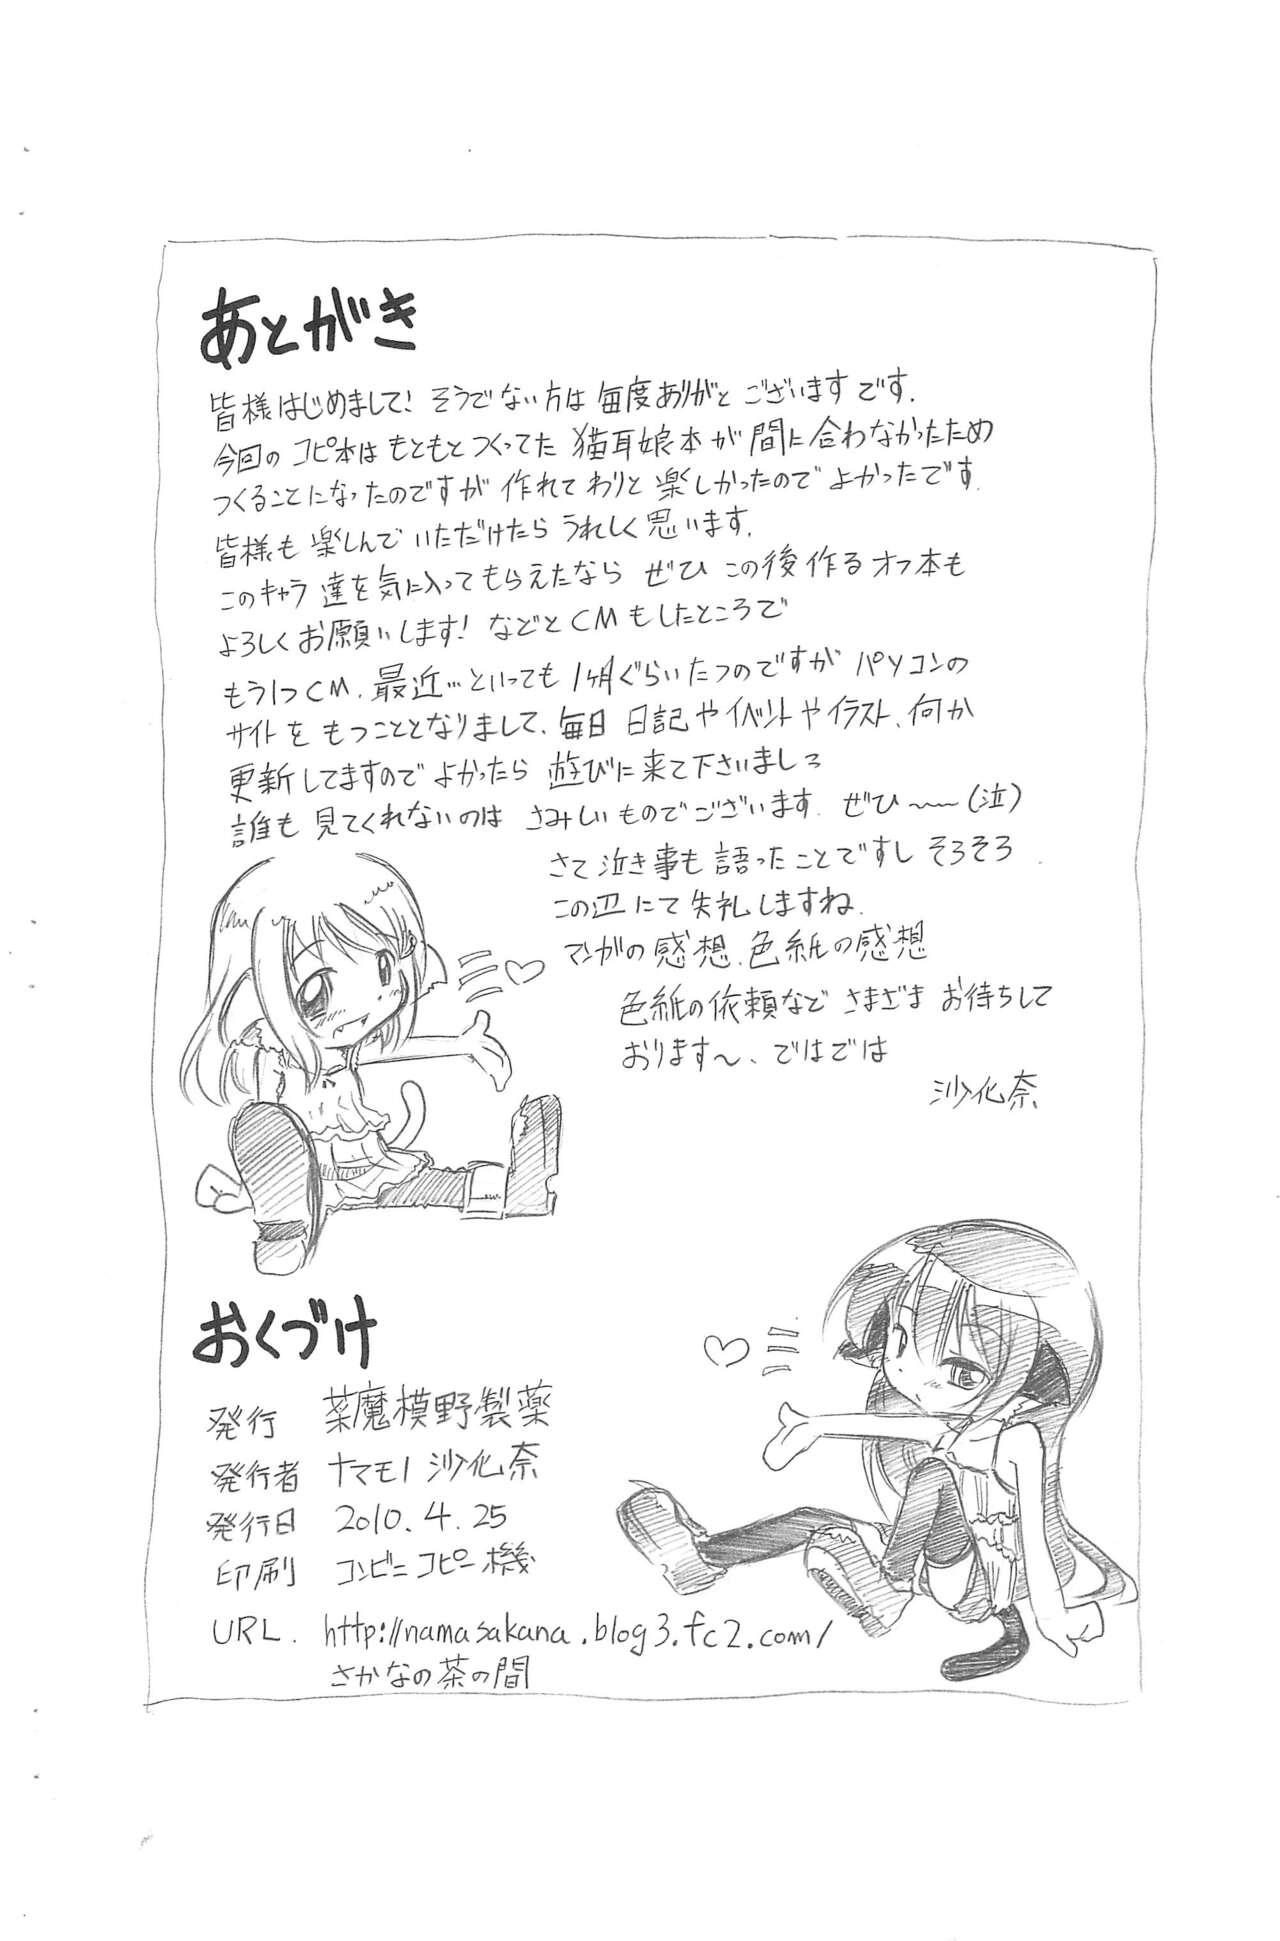 あとがき
皆様はじめまして! そうでない方は 毎度ありがと ございますです.
今回の コピ本は もともと つくってた 猫耳娘本が 間に合わなかったため
つくることになったのですが 作れて わりと 楽しかったので よかったです.
皆様も 楽しんで いただけたら うれしく思います.
このキャラ達を気に入ってもらえたなら ぜひ この後作る オフ本も
よろしくお願いします! などと CMもしたところで
もう1つCM. 最近…といっても 1ヶ月ぐらいたつのですが パソコンの
サイトを もつこととなりまして、毎日 日記や イベントや イラスト、何か
更新してますので よかったら 遊びに来て下さいましろ
誰も 見てくれないのは さみしいものでございます. ぜひ〜〜(泣)
さて 泣き事も 語ったことですし そろそろ
この辺にて 失礼しますね.
マンガの感想、色紙の感想
色紙の依頼など さまざま お待ちして
おります〜、ではでは
沙化奈
おくづけ
発行 薬魔模野製薬
発行者 ナマモノ 沙化奈
発行日 2010.4.25
印刷 コンビニコピー機
URL. http://namasakana.blog3.fc2.com/
さかなの茶の間